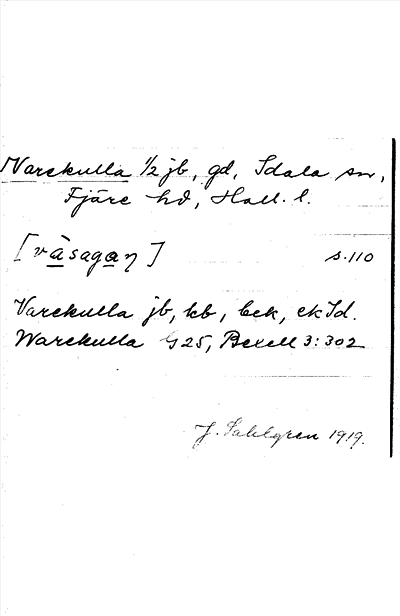 Varekulla 1/2 jb, gd, Idala sn,
Fjäre hd, Hall. l.
[vàsagaŋ] s.110
Varekulla jb, kb, bek, ek Id.
Warekulla G 25, Bexell 3:302
J. Sahlgren 1919.